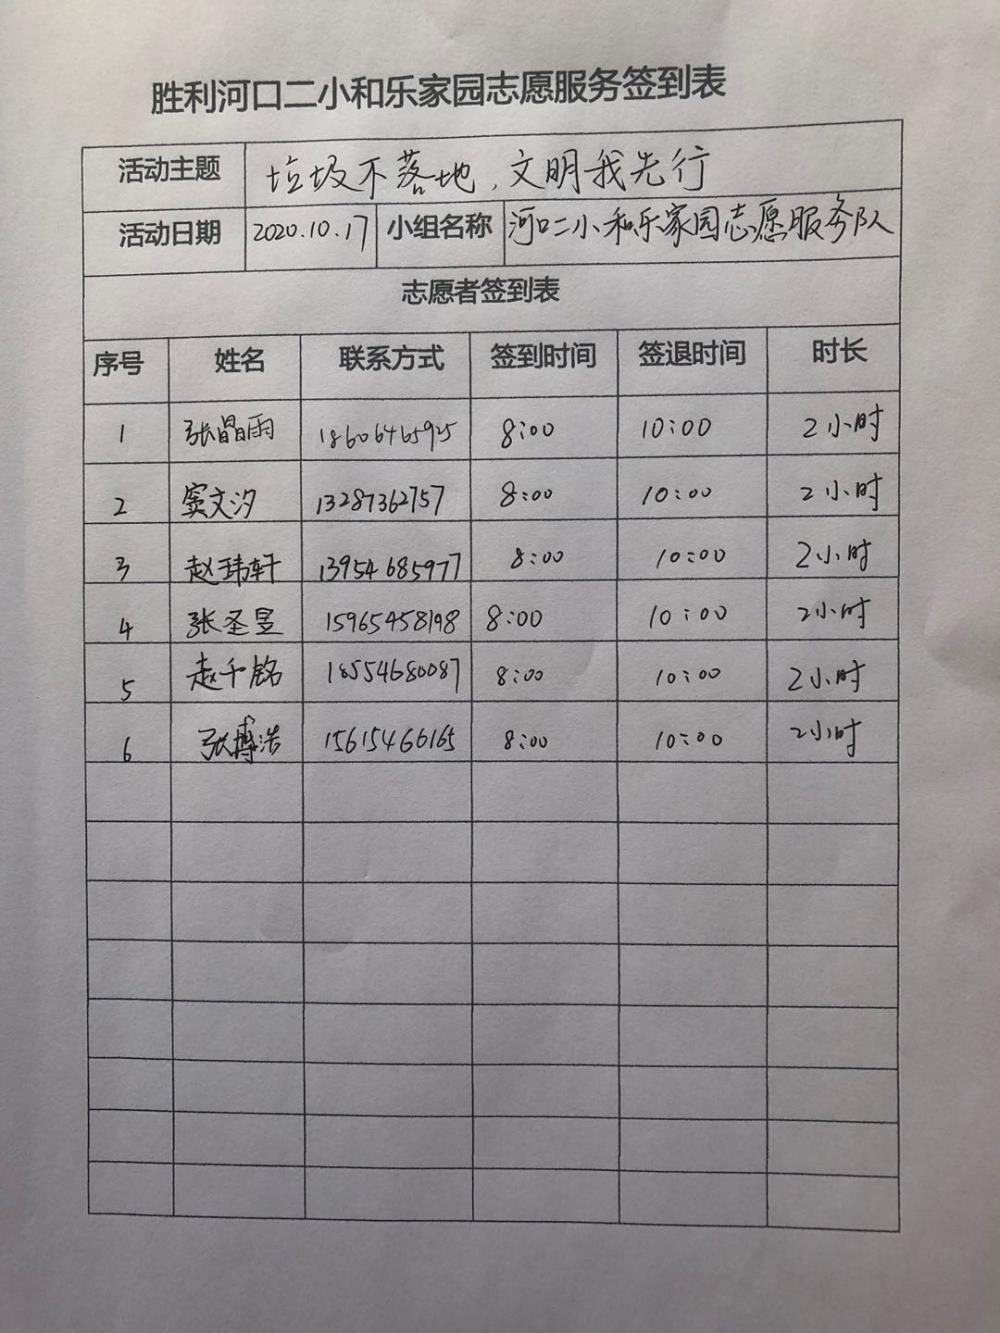 胜利河口二小和乐家园志愿服务签到表
活动主题 垃圾不落地，文明我先行
活动日期 2020.10.17 小组名称 河口二小和乐家园志愿服务队
志愿者签到表
序号 姓名 联系方式 签到时间 签退时间 时长
1 张晶雨 18606465925 8:00 10:00 2小时
2 窦文汐 13287362757 8:00 10:00 2小时
3 赵玮轩 13954685977 8:00 10:00 2小时
4 张圣昱 15965458198 8:00 10:00 2小时
5 赵千铭 18554680087 8:00 10:00 2小时
6 张博浩 15615466165 8:00 10:00 2小时